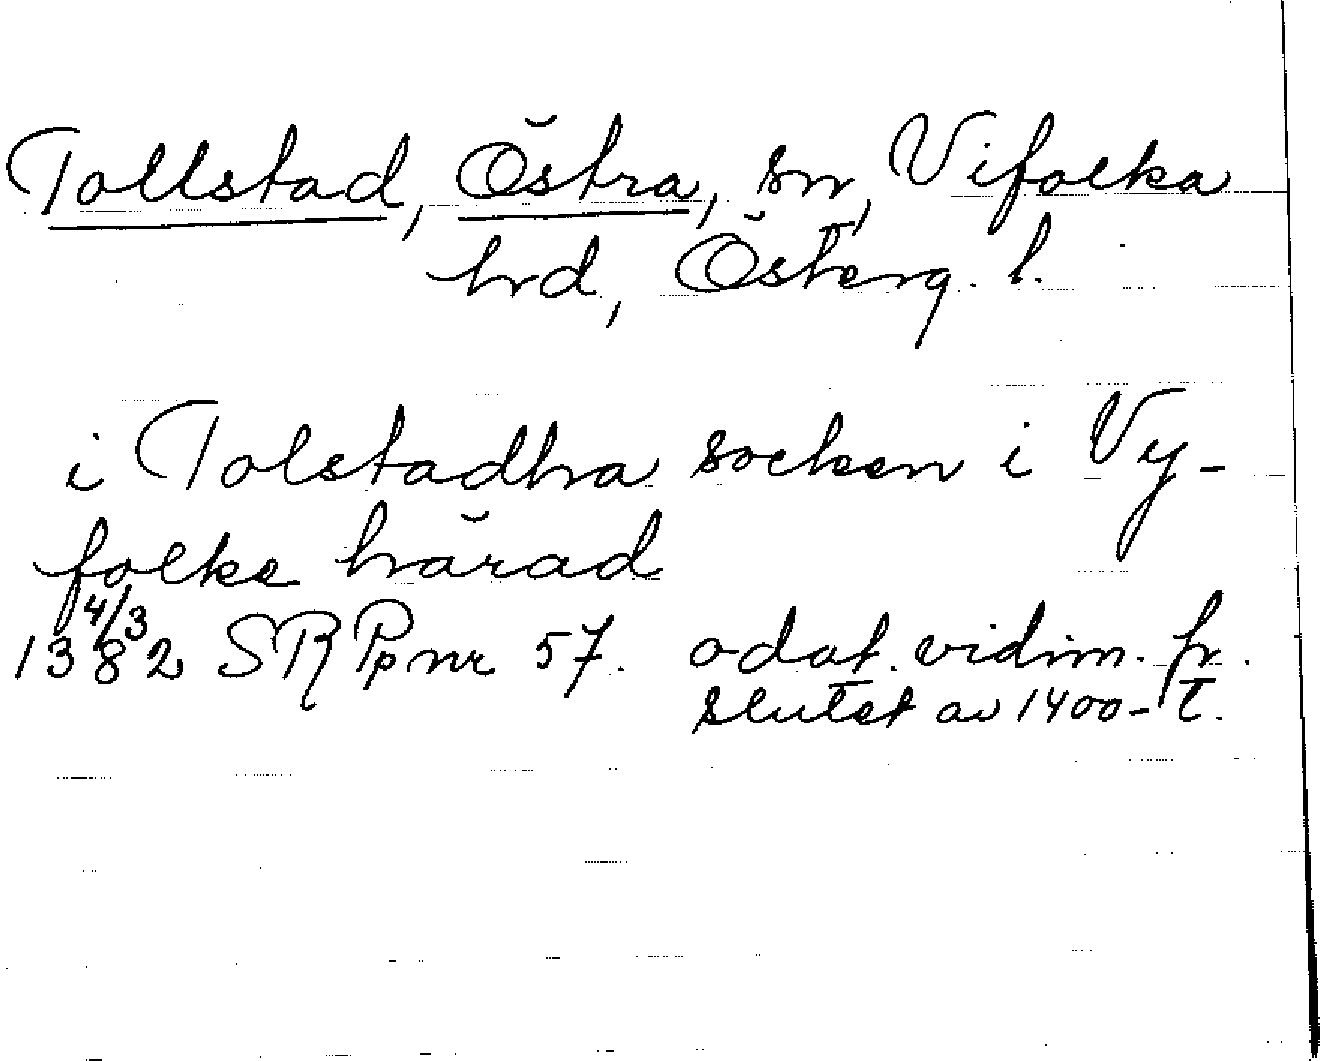 Tollstad, Östra, sn, Vifolka
hrd, Österg. l.
i Tolstadha socken i Vy-
folke härad
1382 4/3 SRPp nr 57. odat. vidim. fr.
slutet av 1400-t.